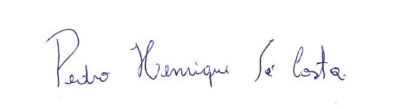 Pedro Henrique Sá Costa